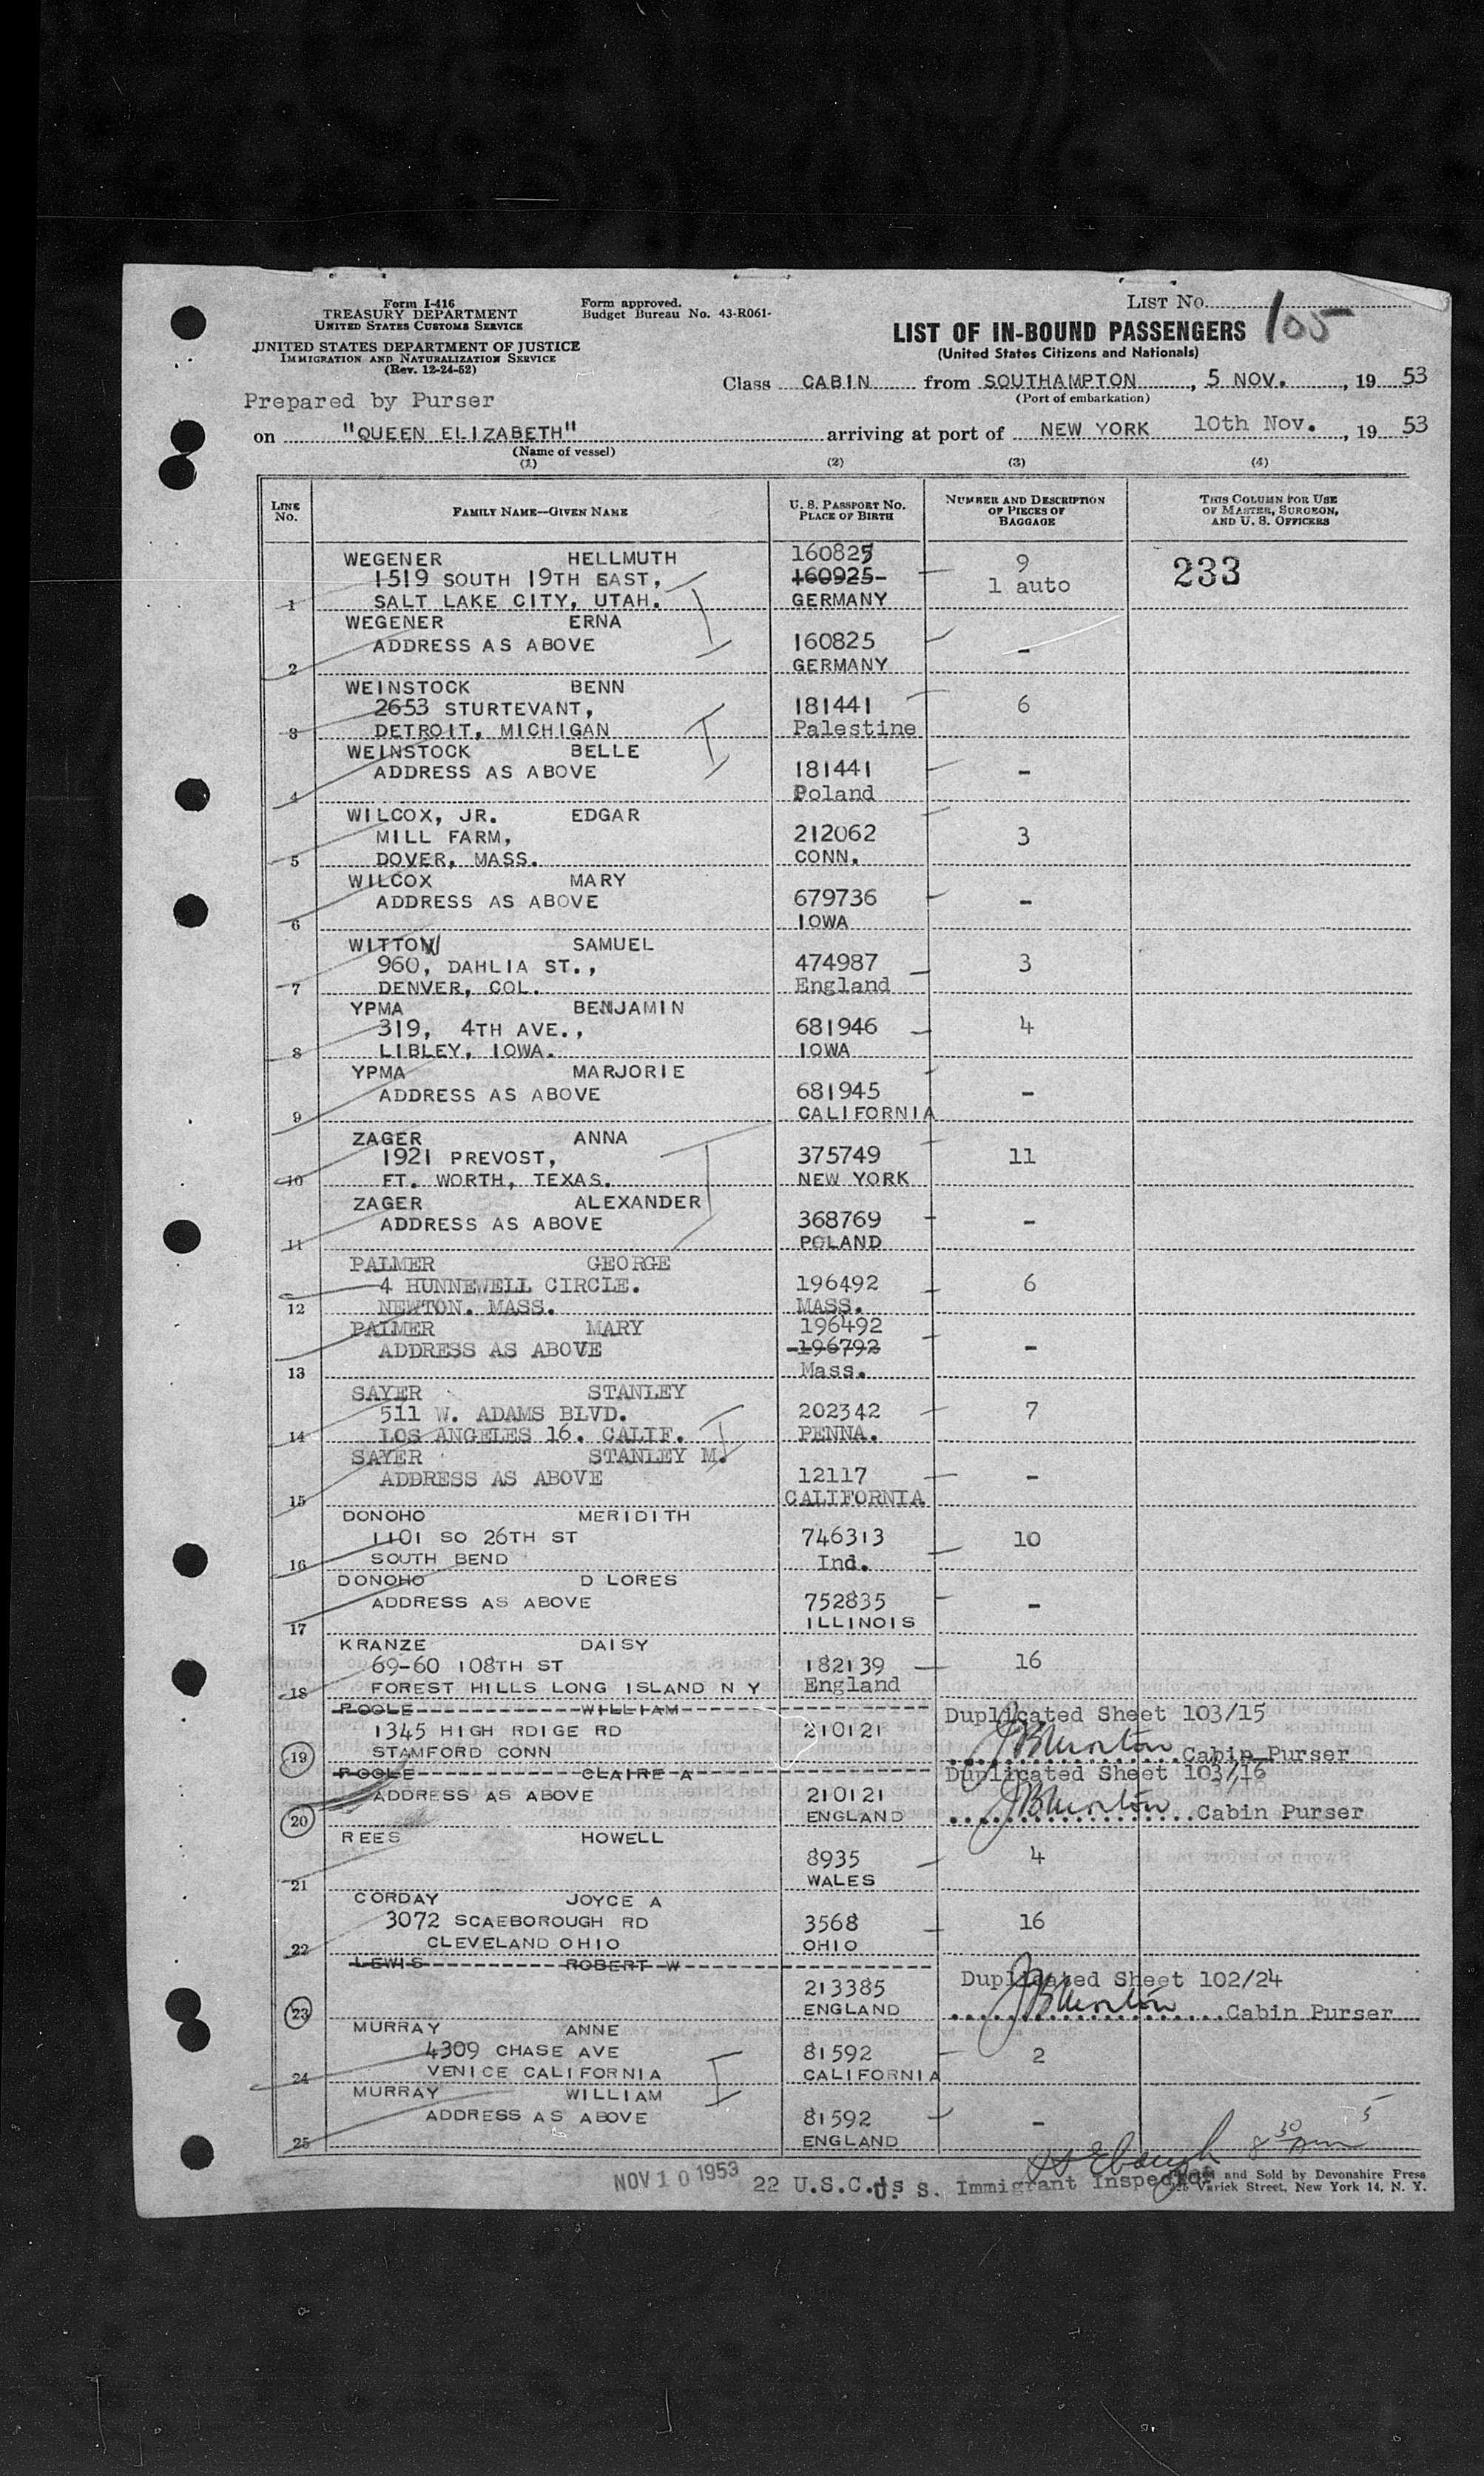 Form I-416
TREASURY DEPARTMENT
UNITED STATES CUSTOMS SERVICE
UNITED STATES DEPARTMENT OF JUSTICE
IMMIGRATION AND NATURALIZATION SERVICE
(Rev. 12-24-52)
Form approved.
Budget Bureau No. 43-R061-
LIST No. 105
LIST OF IN-BOUND PASSENGERS
(United States Citizens and Nationals)
Class CABIN from SOUTHAMPTON, 5 NOV., 1953
(Port of embarkation)
Prepared by Purser
on "QUEEN ELIZABETH" arriving at port of NEW YORK 10th Nov., 1953
(Name of vessel)
(1) (2) (3) (4)
LINE No. FAMILY NAME—GIVEN NAME U. S. PASSPORT NO. PLACE OF BIRTH NUMBER AND DESCRIPTION OF PIECES OF BAGGAGE THIS COLUMN FOR USE OF MASTER, SURGEON, AND U. S. OFFICERS
WEGENER HELLMUTH 160825 9 233
1519 SOUTH 19TH EAST, 160925- 1 auto
1 SALT LAKE CITY, UTAH. GERMANY
WEGENER ERNA
ADDRESS AS ABOVE 160825 -
2 GERMANY
WEINSTOCK BENN
2653 STURTEVANT, 181441 6
3 DETROIT, MICHIGAN Palestine
WEINSTOCK BELLE
ADDRESS AS ABOVE 181441 -
4 Poland
WILCOX, JR. EDGAR
MILL FARM, 212062 3
5 DOVER, MASS. CONN.
WILCOX MARY
ADDRESS AS ABOVE 679736 -
6 IOWA
WITTON SAMUEL
960, DAHLIA ST., 474987 3
7 DENVER, COL. England
YPMA BENJAMIN
319, 4TH AVE., 681946 4
8 LIBLEY, IOWA. IOWA
YPMA MARJORIE
ADDRESS AS ABOVE 681945 -
9 CALIFORNIA
ZAGER ANNA
1921 PREVOST, 375749 11
10 FT. WORTH, TEXAS. NEW YORK
ZAGER ALEXANDER
ADDRESS AS ABOVE 368769 -
11 POLAND
PALMER GEORGE
4 HUNNEWELL CIRCLE. 196492 6
12 NEWTON. MASS. MASS.
PALMER MARY 196492
ADDRESS AS ABOVE -196792 -
13 Mass.
SAYER STANLEY
511 W. ADAMS BLVD. 202342 7
14 LOS ANGELES 16. CALIF. PENNA.
SAYER STANLEY M.
ADDRESS AS ABOVE 12117 -
15 CALIFORNIA
DONOHO MERIDITH
1101 SO 26TH ST 746313 10
16 SOUTH BEND Ind.
DONOHO D LORES
ADDRESS AS ABOVE 752835 -
17 ILLINOIS
KRANZE DAISY
69-60 108TH ST 182139 16
18 FOREST HILLS LONG ISLAND N Y England
POOLE WILLIAM Duplicated Sheet 103/15
1345 HIGH RDIGE RD 210121
19 STAMFORD CONN JBMorton Cabin Purser
POOLE CLAIRE A Duplicated Sheet 103/16
ADDRESS AS ABOVE 210121
20 ENGLAND JBMorton Cabin Purser
REES HOWELL
8935 4
21 WALES
CORDAY JOYCE A
3072 SCAEBOROUGH RD 3568 16
22 CLEVELAND OHIO OHIO
LEWIS ROBERT W
213385 Duplicated Sheet 102/24
23 ENGLAND JBMorton Cabin Purser
MURRAY ANNE
4309 CHASE AVE 81592 2
24 VENICE CALIFORNIA CALIFORNIA
MURRAY WILLIAM
ADDRESS AS ABOVE 81592 -
25 ENGLAND
8 30 pm 5
NOV 10 1953 22 U.S.C.'s U. S. Immigrant Inspector
and Sold by Devonshire Press
Varick Street, New York 14, N. Y.